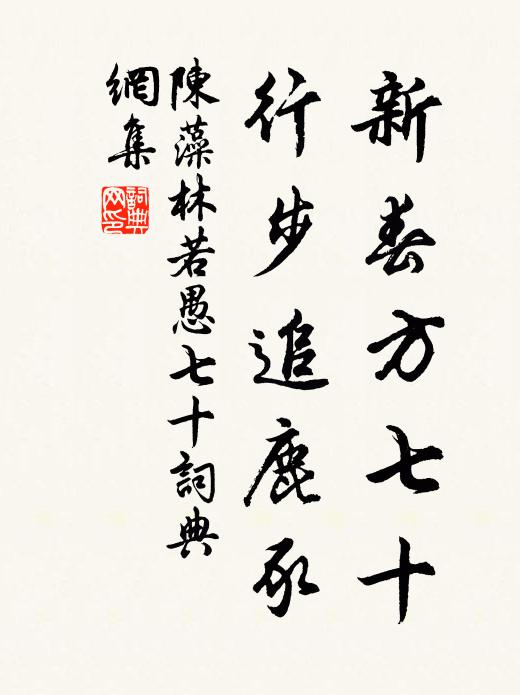 新春方七十
行步追鹿豕
陳藻林若愚七十詞典
網集
詞典
网印